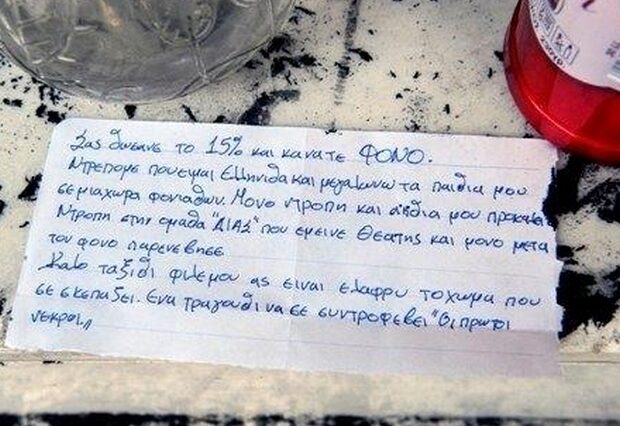 Σας δωσανε το 15% και κανατε ΦΟΝΟ.
Ντρεπομε που ειμαι Ελληνιδα και μεγαλωνω τα παιδια μου
σε μια χωρα φονιαδων. Μονο ντροπη και αηδια μου προκαλει
Ντροπη στην ομαδα "ΔΙΑΣ" που εμεινε θεατης και μονο μετα
τον φονο παρενεβησε
Καλο ταξιδι φιλε μου ας ειναι ελαφρυ το χωμα που
σε σκεπαζει. Ενα τραγουδι να σε συντροφεβει "Οι πρωτοι
νεκροι"